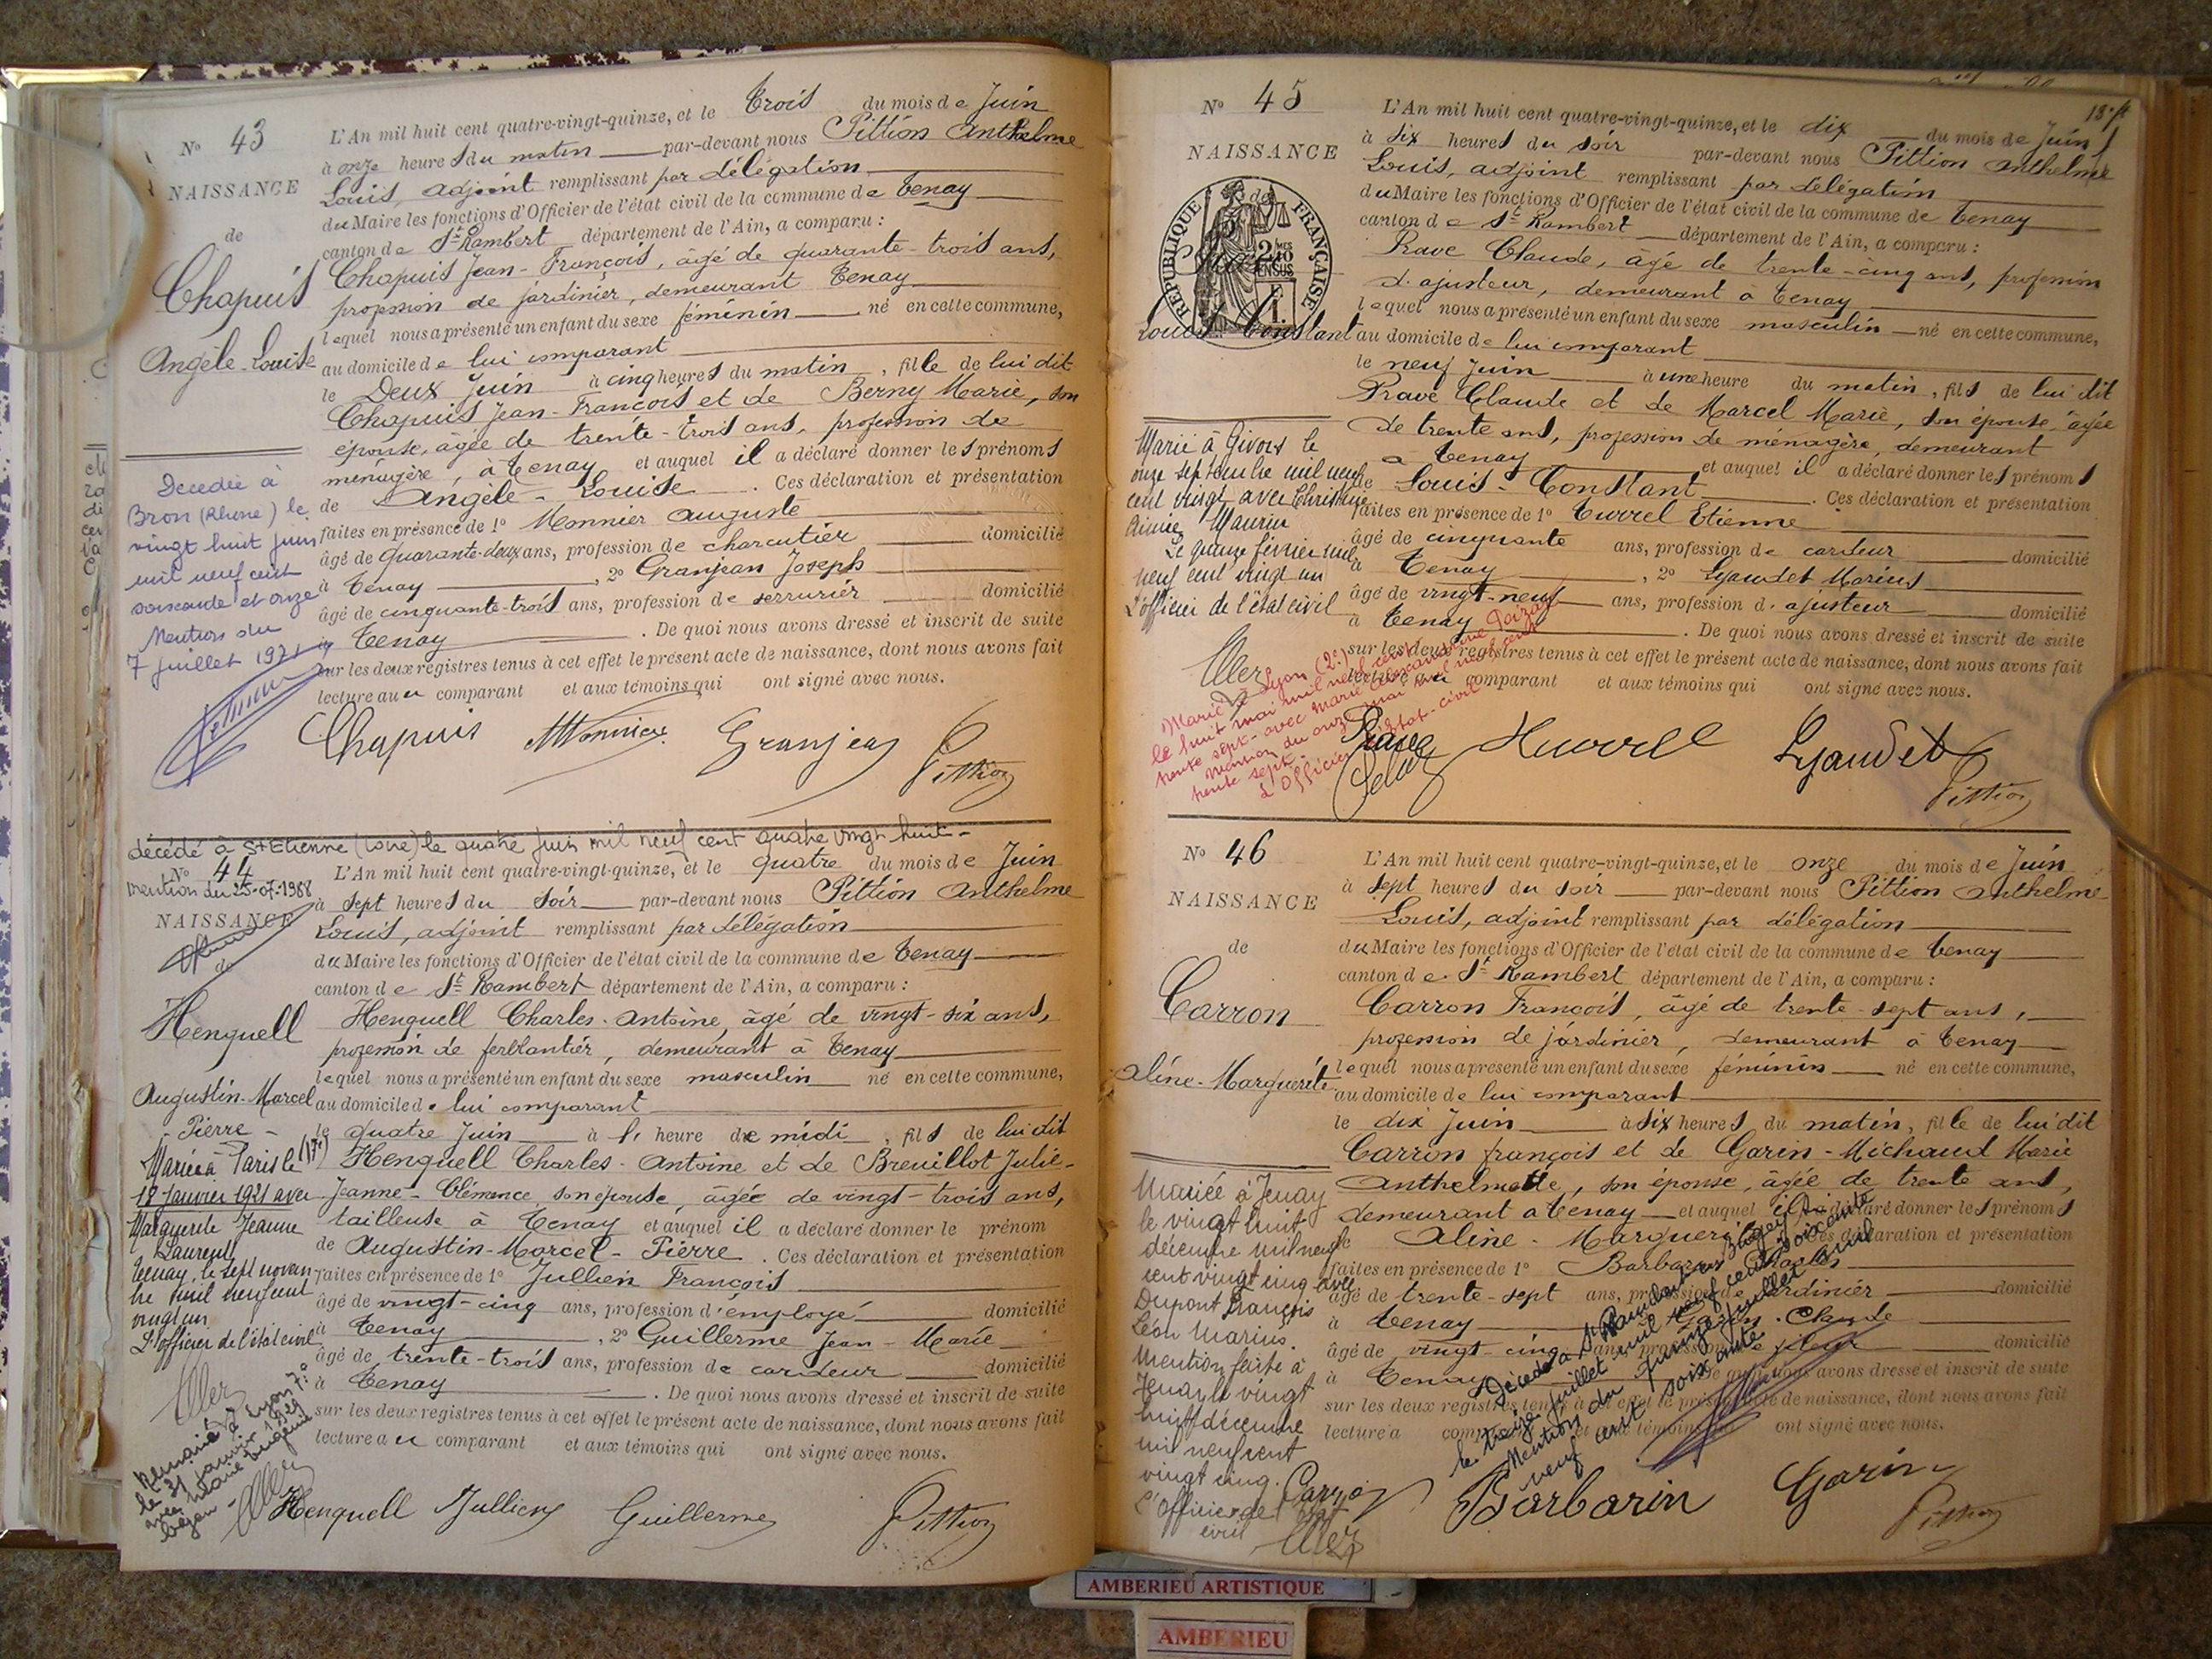 N° 43
NAISSANCE
de
Chapuis
Angèle-Louise
L'An mil huit cent quatre-vingt-quinze, et le trois du mois de Juin
à onze heures du matin par-devant nous Pittion Anthelme
Louis, adjoint remplissant par délégation
du Maire les fonctions d'Officier de l'état civil de la commune de Tenay
canton de St Rambert département de l'Ain, a comparu :
Chapuis Jean-François, âgé de quarante-trois ans,
profession de jardinier, demeurant Tenay
lequel nous a présenté un enfant du sexe féminin né en cette commune,
au domicile de lui comparant
le Deux Juin à cinq heures du matin, fille de lui dit
Chapuis Jean-François et de Berny Marie, son
épouse, âgée de trente-trois ans, profession de
ménagère, à Tenay et auquel il a déclaré donner les prénoms
de Angèle-Louise. Ces déclaration et présentation
faites en présence de 1° Monnier Auguste
âgé de quarante-deux ans, profession de charcutier domicilié
à Tenay, 2° Granjean Joseph
âgé de cinquante-trois ans, profession de serrurier domicilié
à Tenay. De quoi nous avons dressé et inscrit de suite
sur les deux registres tenus à cet effet le présent acte de naissance, dont nous avons fait
lecture au comparant et aux témoins qui ont signé avec nous.
Decedée à
Bron (Rhône) le
vingt huit juin
mil neuf cent
soixante et onze
Mention du
7 juillet 1971
Chapuis Monnier Granjean Pittion
décédé à St Etienne (Loire) le quatre juin mil neuf cent quatre vingt huit-
N° 44
Mention du 25.07.1988
NAISSANCE
de
Henguell
Augustin-Marcel
-Pierre-
L'An mil huit cent quatre-vingt-quinze, et le quatre du mois de Juin
à sept heures du soir par-devant nous Pittion Anthelme
Louis, adjoint remplissant par délégation
du Maire les fonctions d'Officier de l'état civil de la commune de Tenay
canton de St Rambert département de l'Ain, a comparu :
Henguell Charles-Antoine, âgé de vingt-six ans,
profession de ferblantier, demeurant à Tenay
lequel nous a présenté un enfant du sexe masculin né en cette commune,
au domicile de lui comparant
le quatre Juin à heure de midi, fils de lui dit
Henguell Charles-Antoine et de Breuillot Julie-
Jeanne-Clémence, son épouse, âgée de vingt-trois ans,
tailleuse à Tenay et auquel il a déclaré donner le prénom
de Augustin-Marcel-Pierre. Ces déclaration et présentation
faites en présence de 1° Jullien François
âgé de vingt-cinq ans, profession d'employé domicilié
à Tenay, 2° Guillerme Jean-Marie
âgé de trente-trois ans, profession de cardeur domicilié
à Tenay. De quoi nous avons dressé et inscrit de suite
sur les deux registres tenus à cet effet le présent acte de naissance, dont nous avons fait
lecture au comparant et aux témoins qui ont signé avec nous.
Marié à Paris (17e) le
18 Janvier 1921 avec
Marguerite Jeanne
Laurent
Tenay, le sept novem
bre mil neuf cent
vingt un
L'officier de l'état civil
Remarié à Lyon 7e
le 31 janvier 1929
avec Marie Eugénie
Henguell Jullien Guillerme Pittion
N° 45
NAISSANCE
RÉPUBLIQUE FRANÇAISE
Louis Constant
L'An mil huit cent quatre-vingt-quinze, et le dix du mois de Juin
à six heures du soir par-devant nous Pittion Anthelme
Louis, adjoint remplissant par délégation
du Maire les fonctions d'Officier de l'état civil de la commune de Tenay
canton de St Rambert département de l'Ain, a comparu :
Prave Claude, âgé de trente-cinq ans, profession
d'ajusteur, demeurant à Tenay
lequel nous a présenté un enfant du sexe masculin né en cette commune,
au domicile de lui comparant
le neuf Juin à une heure du matin, fils de lui dit
Prave Claude et de Marcel Marie, son épouse, âgée
de trente ans, profession de ménagère, demeurant
à Tenay et auquel il a déclaré donner les prénoms
de Louis-Constant. Ces déclaration et présentation
faites en présence de 1° Turrel Etienne
âgé de cinquante ans, profession de cardeur domicilié
à Tenay, 2° Lyaudet Marius
âgé de vingt-neuf ans, profession d'ajusteur domicilié
à Tenay. De quoi nous avons dressé et inscrit de suite
sur les deux registres tenus à cet effet le présent acte de naissance, dont nous avons fait
lecture au comparant et aux témoins qui ont signé avec nous.
Marié à Givors le
onze septembre mil neuf
cent vingt avec Christine
Aimée Maurin
Le quinze février mil
neuf cent vingt un
L'officier de l'état civil
Marié à Lyon (2e)
le huit mai mil neuf cent
trente sept avec Marie Alexandrine
Mention du onze mai mil neuf cent
trente sept
L'Officier de l'état-civil
Prave Lyaudet
Pittion
N° 46
NAISSANCE
de
Carron
Aline-Marguerite
L'An mil huit cent quatre-vingt-quinze, et le onze du mois de Juin
à sept heures du soir par-devant nous Pittion Anthelme
Louis, adjoint remplissant par délégation
du Maire les fonctions d'Officier de l'état civil de la commune de Tenay
canton de St Rambert département de l'Ain, a comparu :
Carron François, âgé de trente-sept ans,
profession de jardinier, demeurant à Tenay
lequel nous a présenté un enfant du sexe féminin né en cette commune,
au domicile de lui comparant
le dix Juin à six heures du matin, fille de lui dit
Carron françois et de Garin-Michaud Marie
Anthelmette, son épouse, âgée de trente ans,
demeurant à Tenay et auquel il a déclaré donner les prénoms
de Aline-Marguerite. Ces déclaration et présentation
faites en présence de 1° Barbarin
âgé de trente-sept ans, profession de jardinier domicilié
à Tenay, 2° Garin Claude
âgé de vingt-cinq ans, profession de domicilié
à Tenay. De quoi nous avons dressé et inscrit de suite
sur les deux registres tenus à cet effet le présent acte de naissance, dont nous avons fait
lecture a comparant et aux témoins qui ont signé avec nous.
Mariée à Tenay
le vingt huit
décembre mil neuf
cent vingt cinq avec
Dupont François
Léon Marius.
Mention faite à
Tenay le vingt
huit décembre
mil neuf cent
vingt cinq.
L'Officier de l'état
civil
Décédée à St Rambert en Bugey
le treize juillet mil neuf cent soixante
Mention du quinze juillet mil
neuf cent soixante
Carron Barbarin Garin
Pittion
AMBERIEU ARTISTIQUE
AMBERIEU